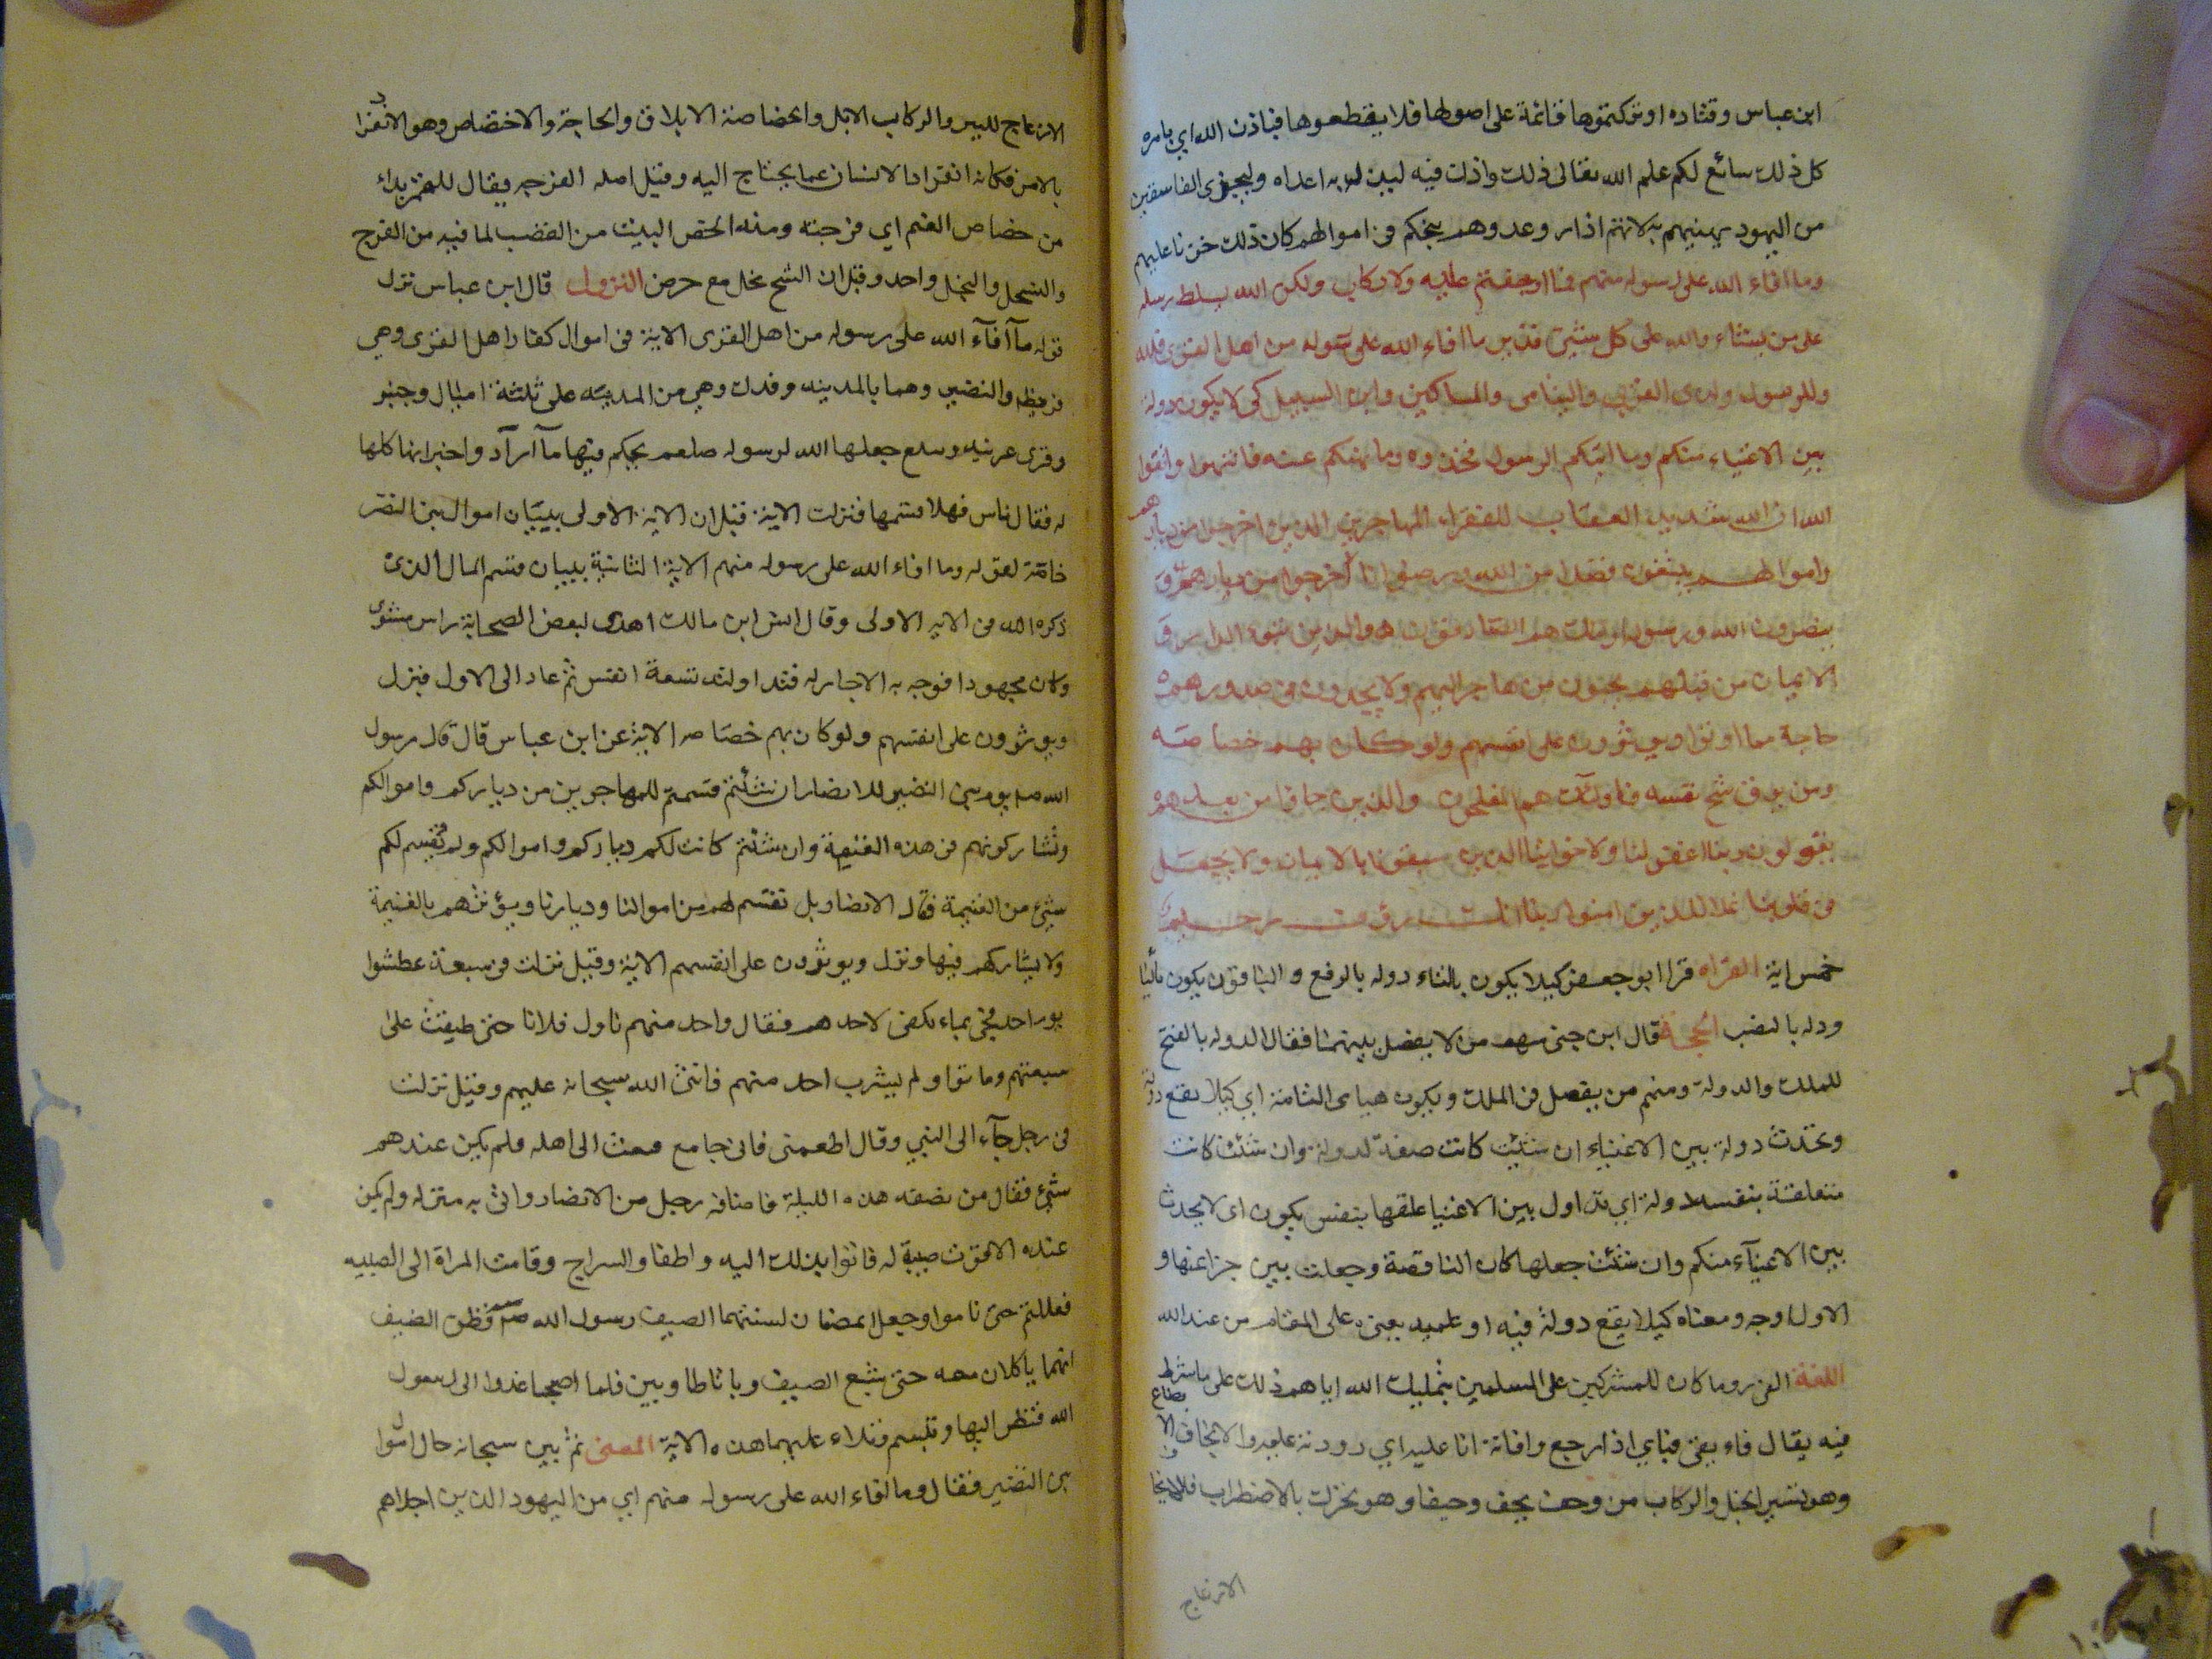 ابن عباس وقتاده او تركتموها قائمة على اصولها فلا يقطعوها فباذن الله اي بامره
كل ذلك سائغ لكم علم الله تعالى ذلك واذن فيه ليذل به اعداه وليجزى الفاسقين
من اليهود يهينهم به لانهم اذا راو عدوهم يتحكم فى اموالهم كان ذلك خزنا عليهم
وما افاء الله على رسوله منهم فما اوجفتم عليه ولا ركاب ولكن الله يسلط رسله
على من يشاء والله على كل شيئ قدير ما افاء الله على رسوله من اهل القرى فلله
وللرسول ولذى القربى واليتامى والمساكين وابن السبيل كى لا يكون دولة
بين الاغنياء منكم وما اتيكم الرسول فخذوه وما نهيكم عنه فانتهوا واتقوا
الله ان الله شديد العقاب للفقراء المهاجرين الذين اخرجوا من ديارهم
واموالهم يبتغون فضلا من الله ورضوانا اخرجوا من ديارهم و
ينصرون الله ورسوله اولئك هم الصادقون والذين تبوؤ الدار و
الايمان من قبلهم يحبون من هاجر اليهم ولا يجدون فى صدورهم
حاجة مما اوتوا ويوثرون على انفسهم ولو كان بهم خصاصه
ومن يوق شح نفسه فاولئك هم المفلحون والذين جاؤا من بعدهم
يقولون ربنا اغفر لنا ولاخواننا الذين سبقونا بالايمان ولا تجعل
فى قلوبنا غلا للذين امنوا ربنا انك رؤف رحيم
خمس اية القراه قرا ابو جعفر كيلا يكون بالتاء دوله بالرفع والباقون يكون بالياء
ودله بالنصب الحجة قال ابن جنى منهم من لا يفصل بينهما فقال الدوله بالفتح
للملك والدولة ومنهم من يفصل فى الملك ويكون هيا هى التامة اي كيلا تقع دولة
وتحدث دولة بين الاغنياء ان شئت كانت صفة لدولة وان شئت كانت
متعلقة بنفس دولة اي تداول بين الاغنيا علقها بنفس يكون اى لا يحدث
بين الاغنيآء منكم وان شئت جعلها كان الناقصة وجعلت بين جزا عنها و
الاول اوجه ومعناه كيلا يقع دولة فيه او عليه يعنى على المقام من عند الله
اللغة الفئ رد ما كان للمشركين على المسلمين بتمليك الله اياهم ذلك على ما شرط
فيه يقال فاء يفئ فيا اي اذا رجع وافاة انا عليه اي رددته عليه والايجاف الا
وهو تسير الخيل والركاب من وجف يجف وجيفا وهو تحرك بالاضطراب فالايجا
الانزعاج
الانزعاج للسير والركاب الابل والخصاصة الاملاق والحاجة والاختصاص وهو الانفراد
بالامر فكانه انفراد الانسان عما يحتاج اليه وقيل اصله الفرجه ويقال للقمر بداء
من خصاص الغيم اي فرجته ومنه الخص البيت من القصب لما فيه من الفرج
والشح والبخل واحد وقيل ان الشح بخل مع حرص النزول قال ابن عباس نزل
قوله مآ افآء الله على رسوله من اهل القرى الاية فى اموال كفار اهل القرى وهي
قريظه والنضير وهما بالمدينه وفدك وهي من المدينه على ثلثة اميال وخيبر
وقرى عرينه وينبع جعلها الله لرسوله صلعم يحكم فيها مآ ارآد واخبر انها كلها
له فقال ناس فهلا قسمها فنزلت الاية قيل ان الاية الاولى بيان اموال بنى النضر
خاصة لقوله وما افاء الله على رسوله منهم الاية الثانية بيان قسم المال الذى
ذكره الله فى الايه الاولى وقال انس ابن مالك اهدى لبعض الصحابة راس مشوى
وكان مجهودا فوجه به الى جار له فتداولته تسعة انفس ثم عاد الى الاول فنزل
ويوثرون على انفسهم ولو كان بهم خصاصه الاية عن ابن عباس قال قال رسول
الله صلم يوم بنى النضير للانصار ان شئتم قسمتم للمهاجرين من دياركم واموالكم
وتشاركونهم فى هذه الغنيمة وان شئتم كانت لكم دياركم واموالكم ولم يقسم لكم
شيئ من الغنيمة فقال الانصار بل نقسم لهم من اموالنا وديارنا ونؤثرهم بالغنيمة
ولا نشاركهم فيها ونزل ويوثرون على انفسهم الاية وقيل نزلت فى سبعة عطشوا
يوم احد فجئ بماء يكفى لاحدهم فقال واحد منهم ناول فلانا حتى طيفت على
سبعتهم وماتوا ولم يشرب احد منهم فاثنى الله سبحانه عليهم وقيل نزلت
فى رجل جآء الى النبي وقال اطعمنى فانى جايع فبعث الى اهله فلم يكن عندهم
شيئ فقال من يضفه هذه الليلة فاضافه رجل من الانصار واتى به منزله ولم يكن
عنده الا قوت صبية له فاتوا بذلك اليه واطفاو السراج وقامت المراة الى الصبيه
فعللتهم حتى ناموا وجعلا يمضغان لسنتهما لضيف رسول الله صلعم فظن الضيف
انهما ياكلان معه حتى شبع الضيف وباتا طاويين فلما اصبحا غدوا الى رسول
الله فنظر اليها وتبسم وتلاء عليهما هذه الاية المعنى ثم بين سبحانه حال اموال
بنى النضير فقال وما افاء الله على رسوله منهم اي من اليهود الذين اجلاهم